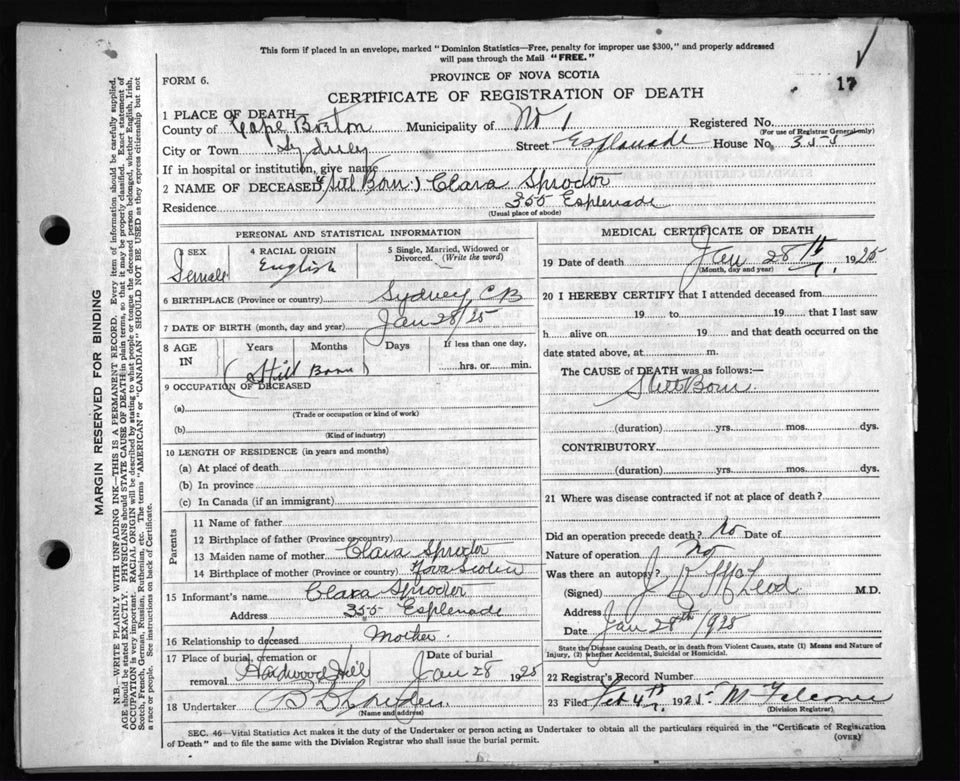 This form if placed in an envelope, marked "Dominion Statistics—Free, penalty for improper use $300," and properly addressed
will pass through the Mail "FREE."
FORM 6.
PROVINCE OF NOVA SCOTIA
17
CERTIFICATE OF REGISTRATION OF DEATH
1 PLACE OF DEATH
County of Cape Breton Municipality of No 1 Registered No.
(For use of Registrar General only)
City or Town Sydney Street Esplanade House No. 355
If in hospital or institution, give name
2 NAME OF DECEASED (Still Born) Clara Sproctor
Residence 355 Esplenade
(Usual place of abode)
PERSONAL AND STATISTICAL INFORMATION
3 SEX 4 RACIAL ORIGIN 5 Single, Married, Widowed or
Divorced. (Write the word)
Female English
6 BIRTHPLACE (Province or country) Sydney, CB
7 DATE OF BIRTH (month, day and year) Jan 28/25
8 AGE IN Years Months Days If less than one day,
hrs. or min.
(Still Born)
9 OCCUPATION OF DECEASED
(a)
(Trade or occupation or kind of work)
(b)
(Kind of industry)
10 LENGTH OF RESIDENCE (in years and months)
(a) At place of death
(b) In province
(c) In Canada (if an immigrant)
Parents
11 Name of father
12 Birthplace of father (Province or country)
13 Maiden name of mother Clara Sproctor
14 Birthplace of mother (Province or country) Nova Scotia
15 Informant's name Clara Sproctor
Address 355 Esplenade
16 Relationship to deceased Mother.
17 Place of burial, cremation or Date of burial
removal Hardwood Hill Jan 28 1925
18 Undertaker
(Name and address)
MEDICAL CERTIFICATE OF DEATH
19 Date of death Jan 28th, 1925
(Month, day and year)
20 I HEREBY CERTIFY that I attended deceased from
19 to 19 that I last saw
h alive on 19 and that death occurred on the
date stated above, at m.
The CAUSE of DEATH was as follows:—
Still Born
(duration) yrs. mos. dys.
CONTRIBUTORY.
(duration) yrs. mos. dys.
21 Where was disease contracted if not at place of death?
Did an operation precede death? No Date of
Nature of operation
Was there an autopsy? No
(Signed) McLeod M.D.
Address
Date Jan 28th/1925
State the Disease causing Death, or in death from Violent Causes, state (1) Means and Nature of
Injury, (2) whether Accidental, Suicidal or Homicidal.
22 Registrar's Record Number
23 Filed Feb 4th, 1925
(Division Registrar)
SEC. 46—Vital Statistics Act makes it the duty of the Undertaker or person acting as Undertaker to obtain all the particulars required in the "Certificate of Registration
of Death" and to file the same with the Division Registrar who shall issue the burial permit.
(OVER)
MARGIN RESERVED FOR BINDING
N.B.—WRITE PLAINLY WITH UNFADING INK—THIS IS A PERMANENT RECORD. Every item of information should be carefully supplied.
AGE should be stated EXACTLY. PHYSICIANS should STATE CAUSE OF DEATH in plain terms, so that it may be properly classified. Exact statement of
OCCUPATION is very important. RACIAL ORIGIN will be described by stating to what people or tongue the deceased person belonged, whether English, Irish,
Scotch, French, German, Russian, Ruthenian, etc. The terms "AMERICAN" or "CANADIAN" SHOULD NOT BE USED as they express citizenship but not
a race or people. See instructions on back of Certificate.